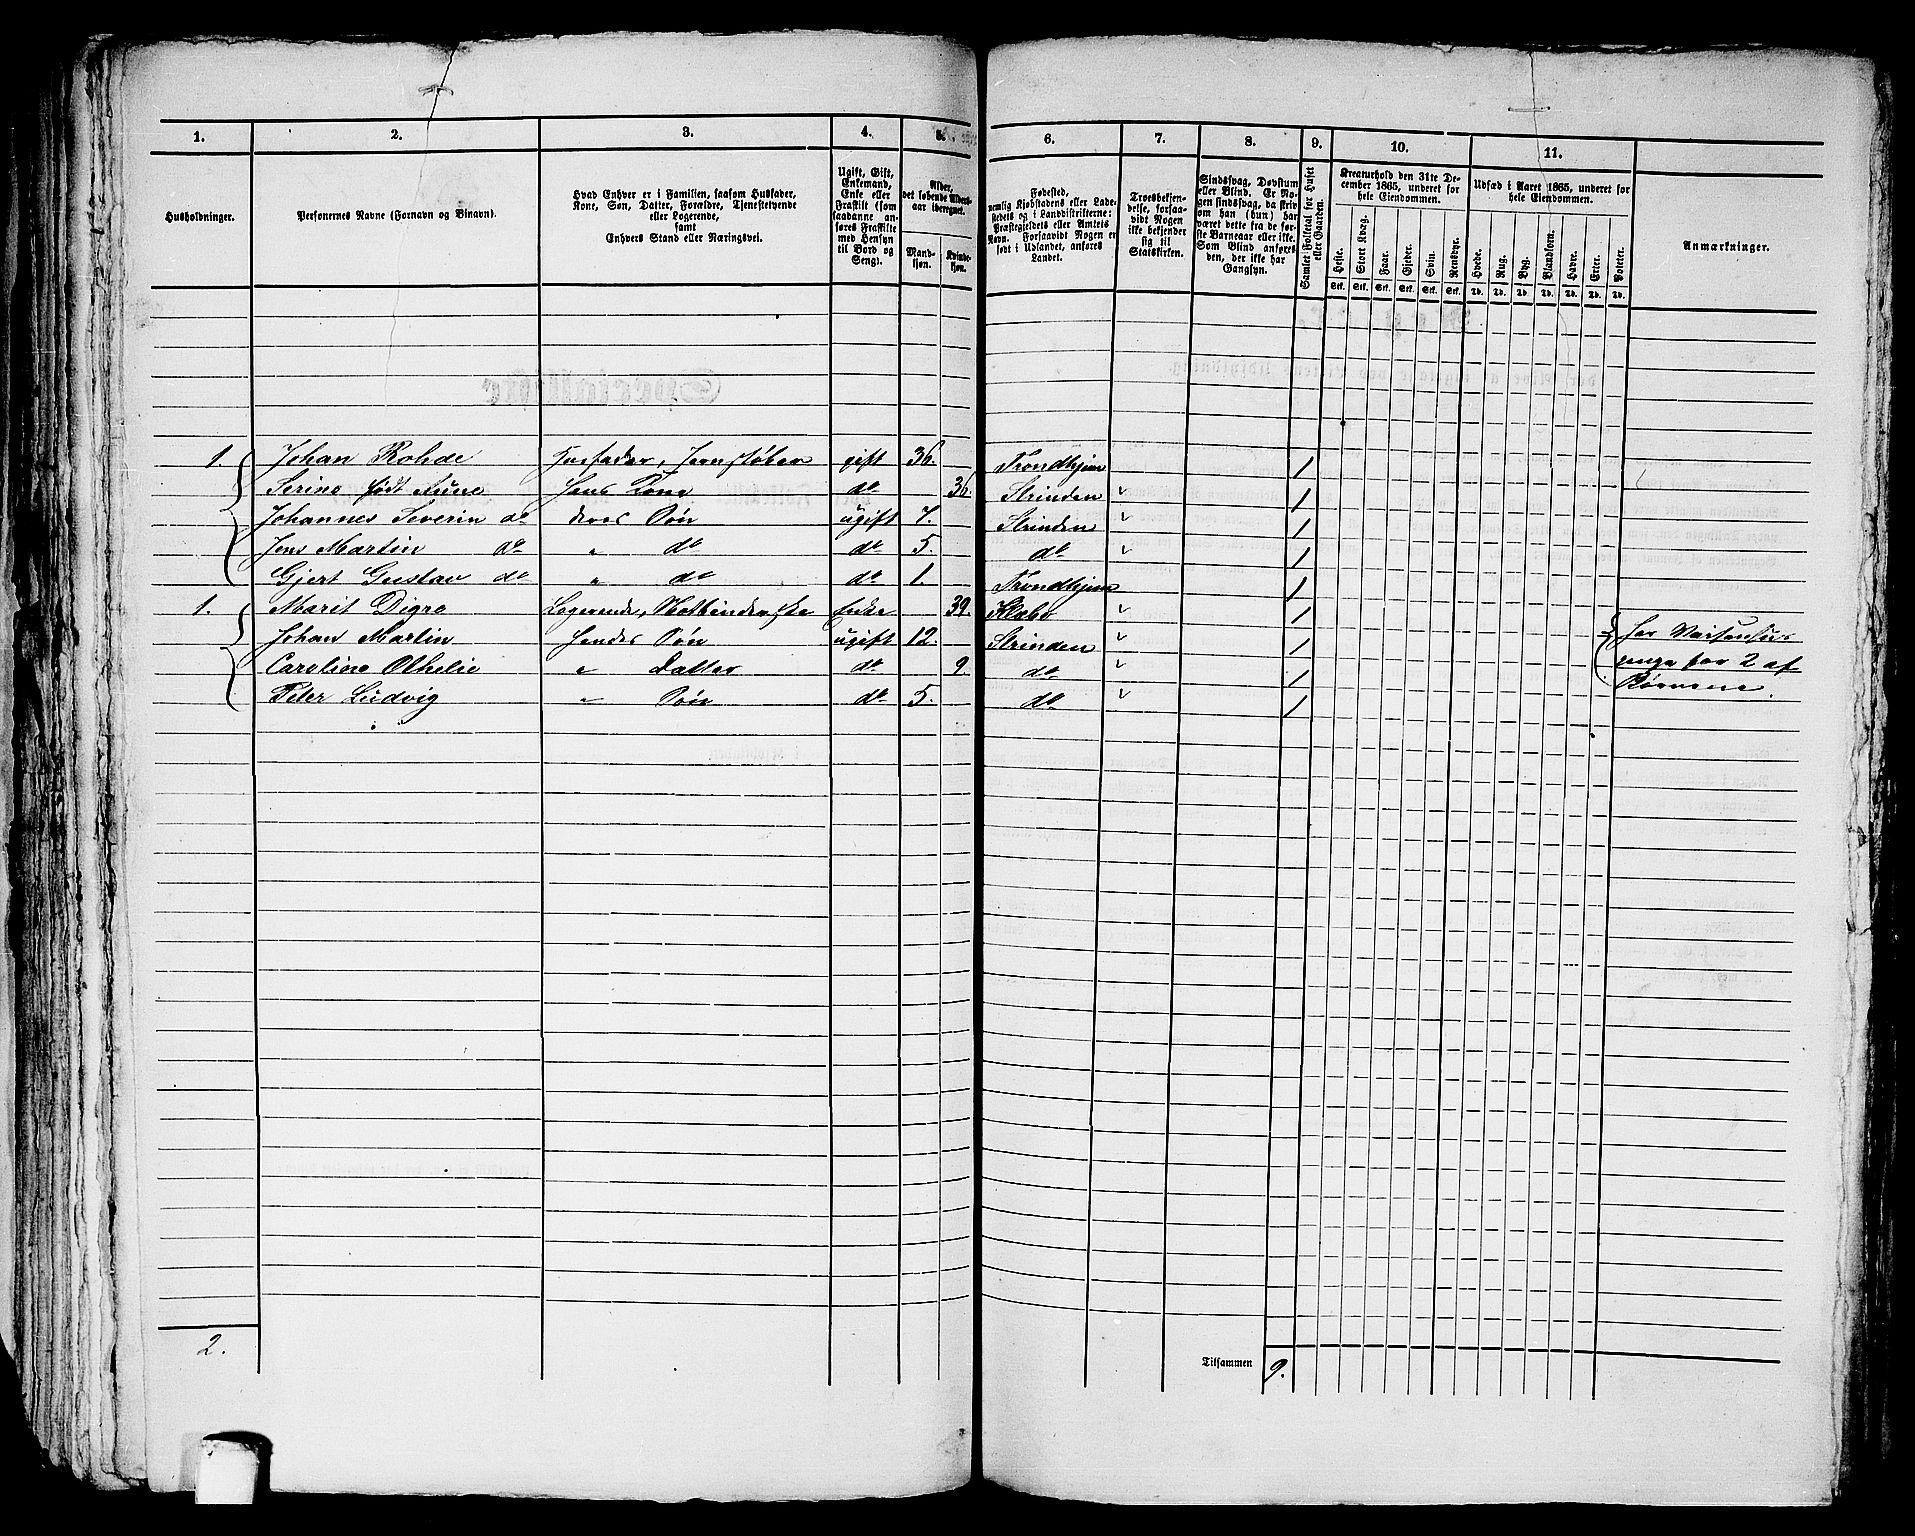 1. 2. 3. 4. 5. 6. 7. 8. 9. 10. 11.
Husholdninger.
Personernes Navne (Fornavn og Binavn).
Hvad Enhver er i Familien, saasom Husfader,
Kone, Søn, Datter, Forældre, Tjenestetyende
eller Logerende,
samt
Enhvers Stand eller Næringsvei.
Ugift, Gift,
Enkemand,
Enke eller
Fraskilt (som
saadanne an-
føres Fraskilte
med Hensyn
til Bord og
Seng).
Alder,
det løbende Alders-
aar iberegnet.
Mand-
kjøn.
Kvinde-
kjøn.
Fødested,
nemlig Kjøbstadens eller Lade-
stedets og i Landdistrikterne:
Præstegjeldets eller Amtets
Navn. Forsaavidt Nogen er
født i Udlandet, anføres
Landet.
Troesbekjen-
delse, forsaa-
vidt Nogen
ikke bekjender
sig til
Statskirken.
Sindssvag, Døvstum
eller Blind. Er No-
gen sindssvag, da skriv
om han (hun) har
været dette fra de før-
ste Barneaar eller ikke.
Som Blind anføres
den, der ikke har
Gangsyn.
Samlet Folketal for Huset
eller Gaarden.
Kreaturhold den 31te De-
cember 1865, underet for
hele Eiendommen.
Heste. Stort Kvæg. Faar. Gjeder. Svin. Rensdyr.
Stk. Stk. Stk. Stk. Stk. Stk.
Udsæd i Aaret 1865, underet for
hele Eiendommen.
Hvede. Rug. Byg. Blandkorn. Havre. Erter. Poteter.
Td. Td. Td. Td. Td. Td. Td.
Anmærkninger.
1. Johan Rohde Husfader, Jernstøber gift 36. Trondhjem /
Serine født Aune Hans Kone do 36. Strinden /
Johannes Severin do deres Søn ugift 7. Strinden /
Jens Martin do " do do 5. do /
Gjert Gustav do " do do 1. Trondhjem /
1. Marit Digre Logerende, Notbinderske Enke 39. Klæbo /
Johan Martin Hendes Søn ugift 12. Strinden /
Caroline Othelie " Datter do 9. do /
Peter Ludvig " Søn do 5. do /
har Vaisenhus
penge for 2 af
Børnene.
2.
Tilsammen 9.